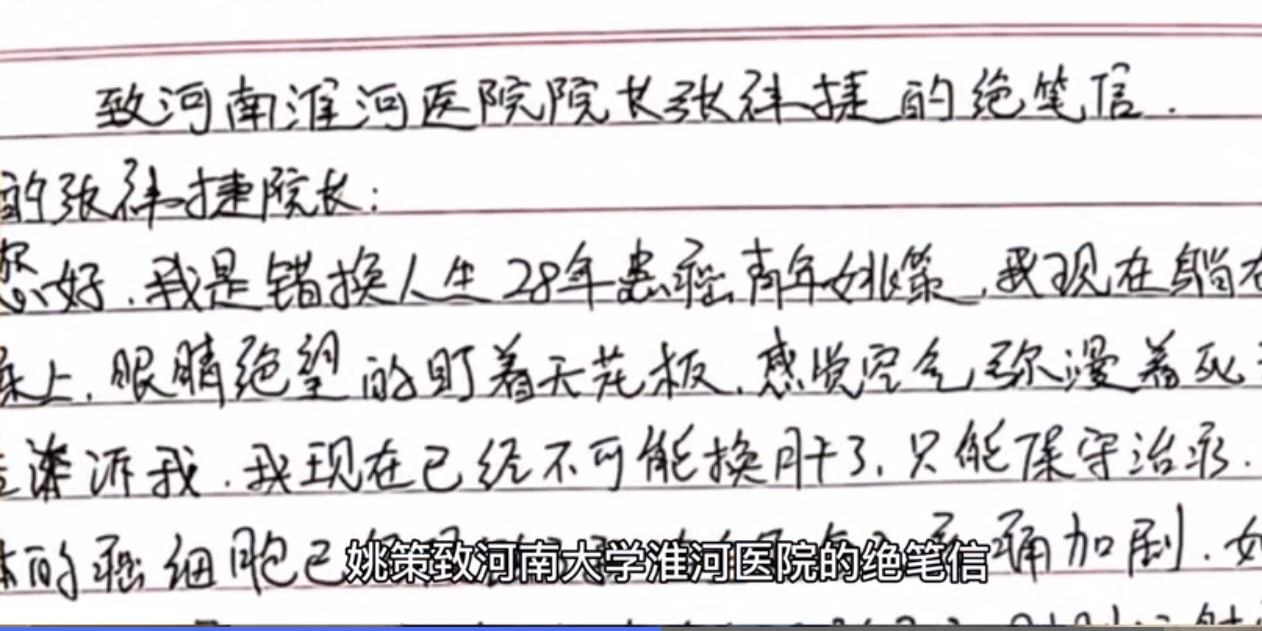 致河南淮河医院院长张祎捷的绝笔信.
的张祎捷院长:
您好.我是错换人生28年患癌青年姚策,我现在躺在
床上,眼睛绝望的盯着天花板,感觉空气弥漫着死
诉我.我现在已经不可能换肝了,只能保守治疗.
的癌细胞已 痛加剧.如
姚策致河南大学淮河医院的绝笔信